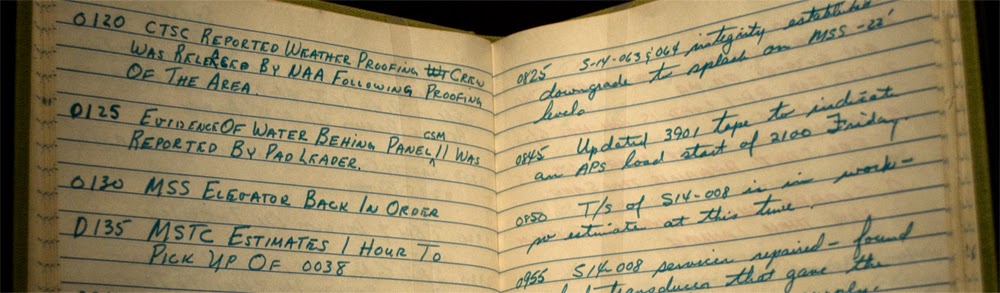 0120 CTSC REPORTED WEATHER PROOFING CREW
WAS RELEASED BY NAA FOLLOWING PROOFING
OF THE AREA.
0125 EVIDENCE OF WATER BEHING PANEL CSM 11 WAS
REPORTED BY PAD LEADER.
0130 MSS ELEVATOR BACK IN ORDER
0135 MSTC ESTIMATES 1 HOUR TO
PICK UP OF 0038
0825 S-14-063 & 064 integrity established
downgrade to splash on MSS -22'
levels
0845 Updated 3901 tape to indicate
an APS load start of 2100 Friday.
0850 T/S of S14-008 is in work-
no estimate at this time.
0955 S14-008 servicer repaired - found
transducer that gave the